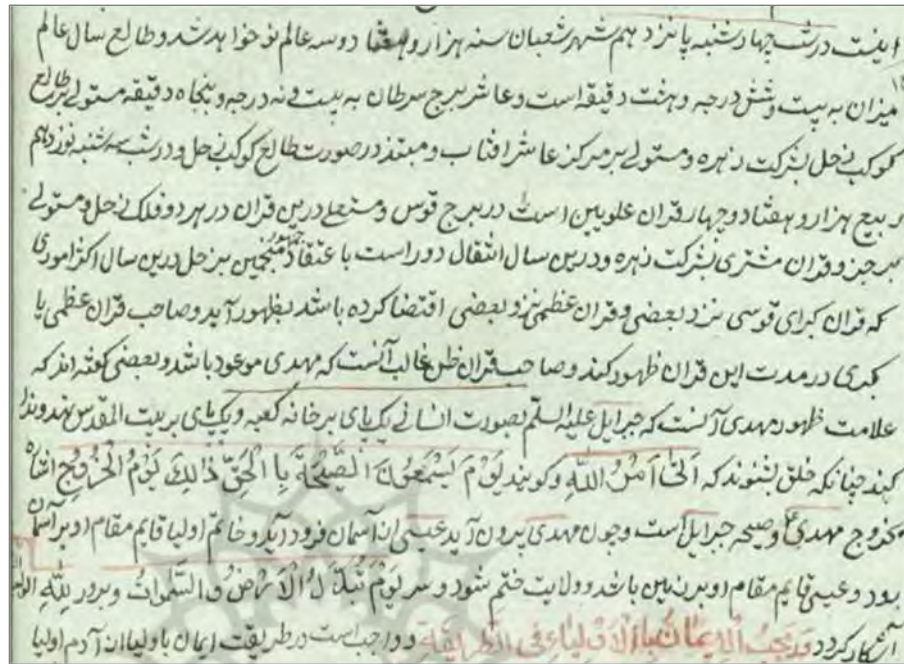 اینست در شب چهارشنبه پانزدهم شهر شعبان سنه هزار و هفتاد و سه عالم نو خواهد شد و طالع سال عالم
میزان به بیست و شش درجه و هشت دقیقه است و عاشر ببرج سرطان به بیست و نه درجه و پنجاه دقیقه مستولی بر طالع
کوکب زحل بشرکت زهره و مستولے بر مرکز عاشر افتاب و مبتز در صورت طالع کوکب زحل و در شب سه شنبه نوزدهم
ربیع هزار و هفتاد و چهار قران علویین است در ببرج قوس و مستعلے درین قران در هر دو فلک زحل و مستولے
بر جزو قران مشتری بشرکت زهره و درین سال انتقال دور است با عتقاد منجمین بزحل درین سال اکثر اموری
که قران کبرای قوسی نزد بعضی و قران عظمی نزد بعضی اقتضا کرده باشد بظهور آید و صاحب قران عظمی یا
کبری در مدت این قران ظهور کند و صاحب قران ظن غالب آنست که مهدی موعود باشد و بعضی کفته اند که
علامت ظهور مهدی آنست که جبرایل علیه السلم بصورت انسانے یکپای بر خانه کعبه و یکپای بر بیت المقدس نهد و ندا
کند چنانکه خلق بشنوند که اَتیٰ اَمْرُ اللّٰهِ و کویند یَوْمَ یَسْمَعُونَ الصَّیْحَةَ بِا الْحَقِّ ذَالِكَ یَوْمُ الْخُرُوجِ
خروج مهدی و صیحه جبرایل است و چون مهدی بیرون آید عیسی از آسمان فرود آید و خاتم اولیا قایم مقام او بر آسمان
بود و عیسی قایم مقام او بر زمین باشد و ولایت ختم شود و سر یَوْمَ تُبَدَّلُ الْاَرْضُ و السَّمٰوات و برزوا لِلّٰهِ
آشکار کردد قد یجبُ الایمانُ باالاولیاء فی الطریقة و واجب است در طریقت ایمان باولیا از آدم اولیا